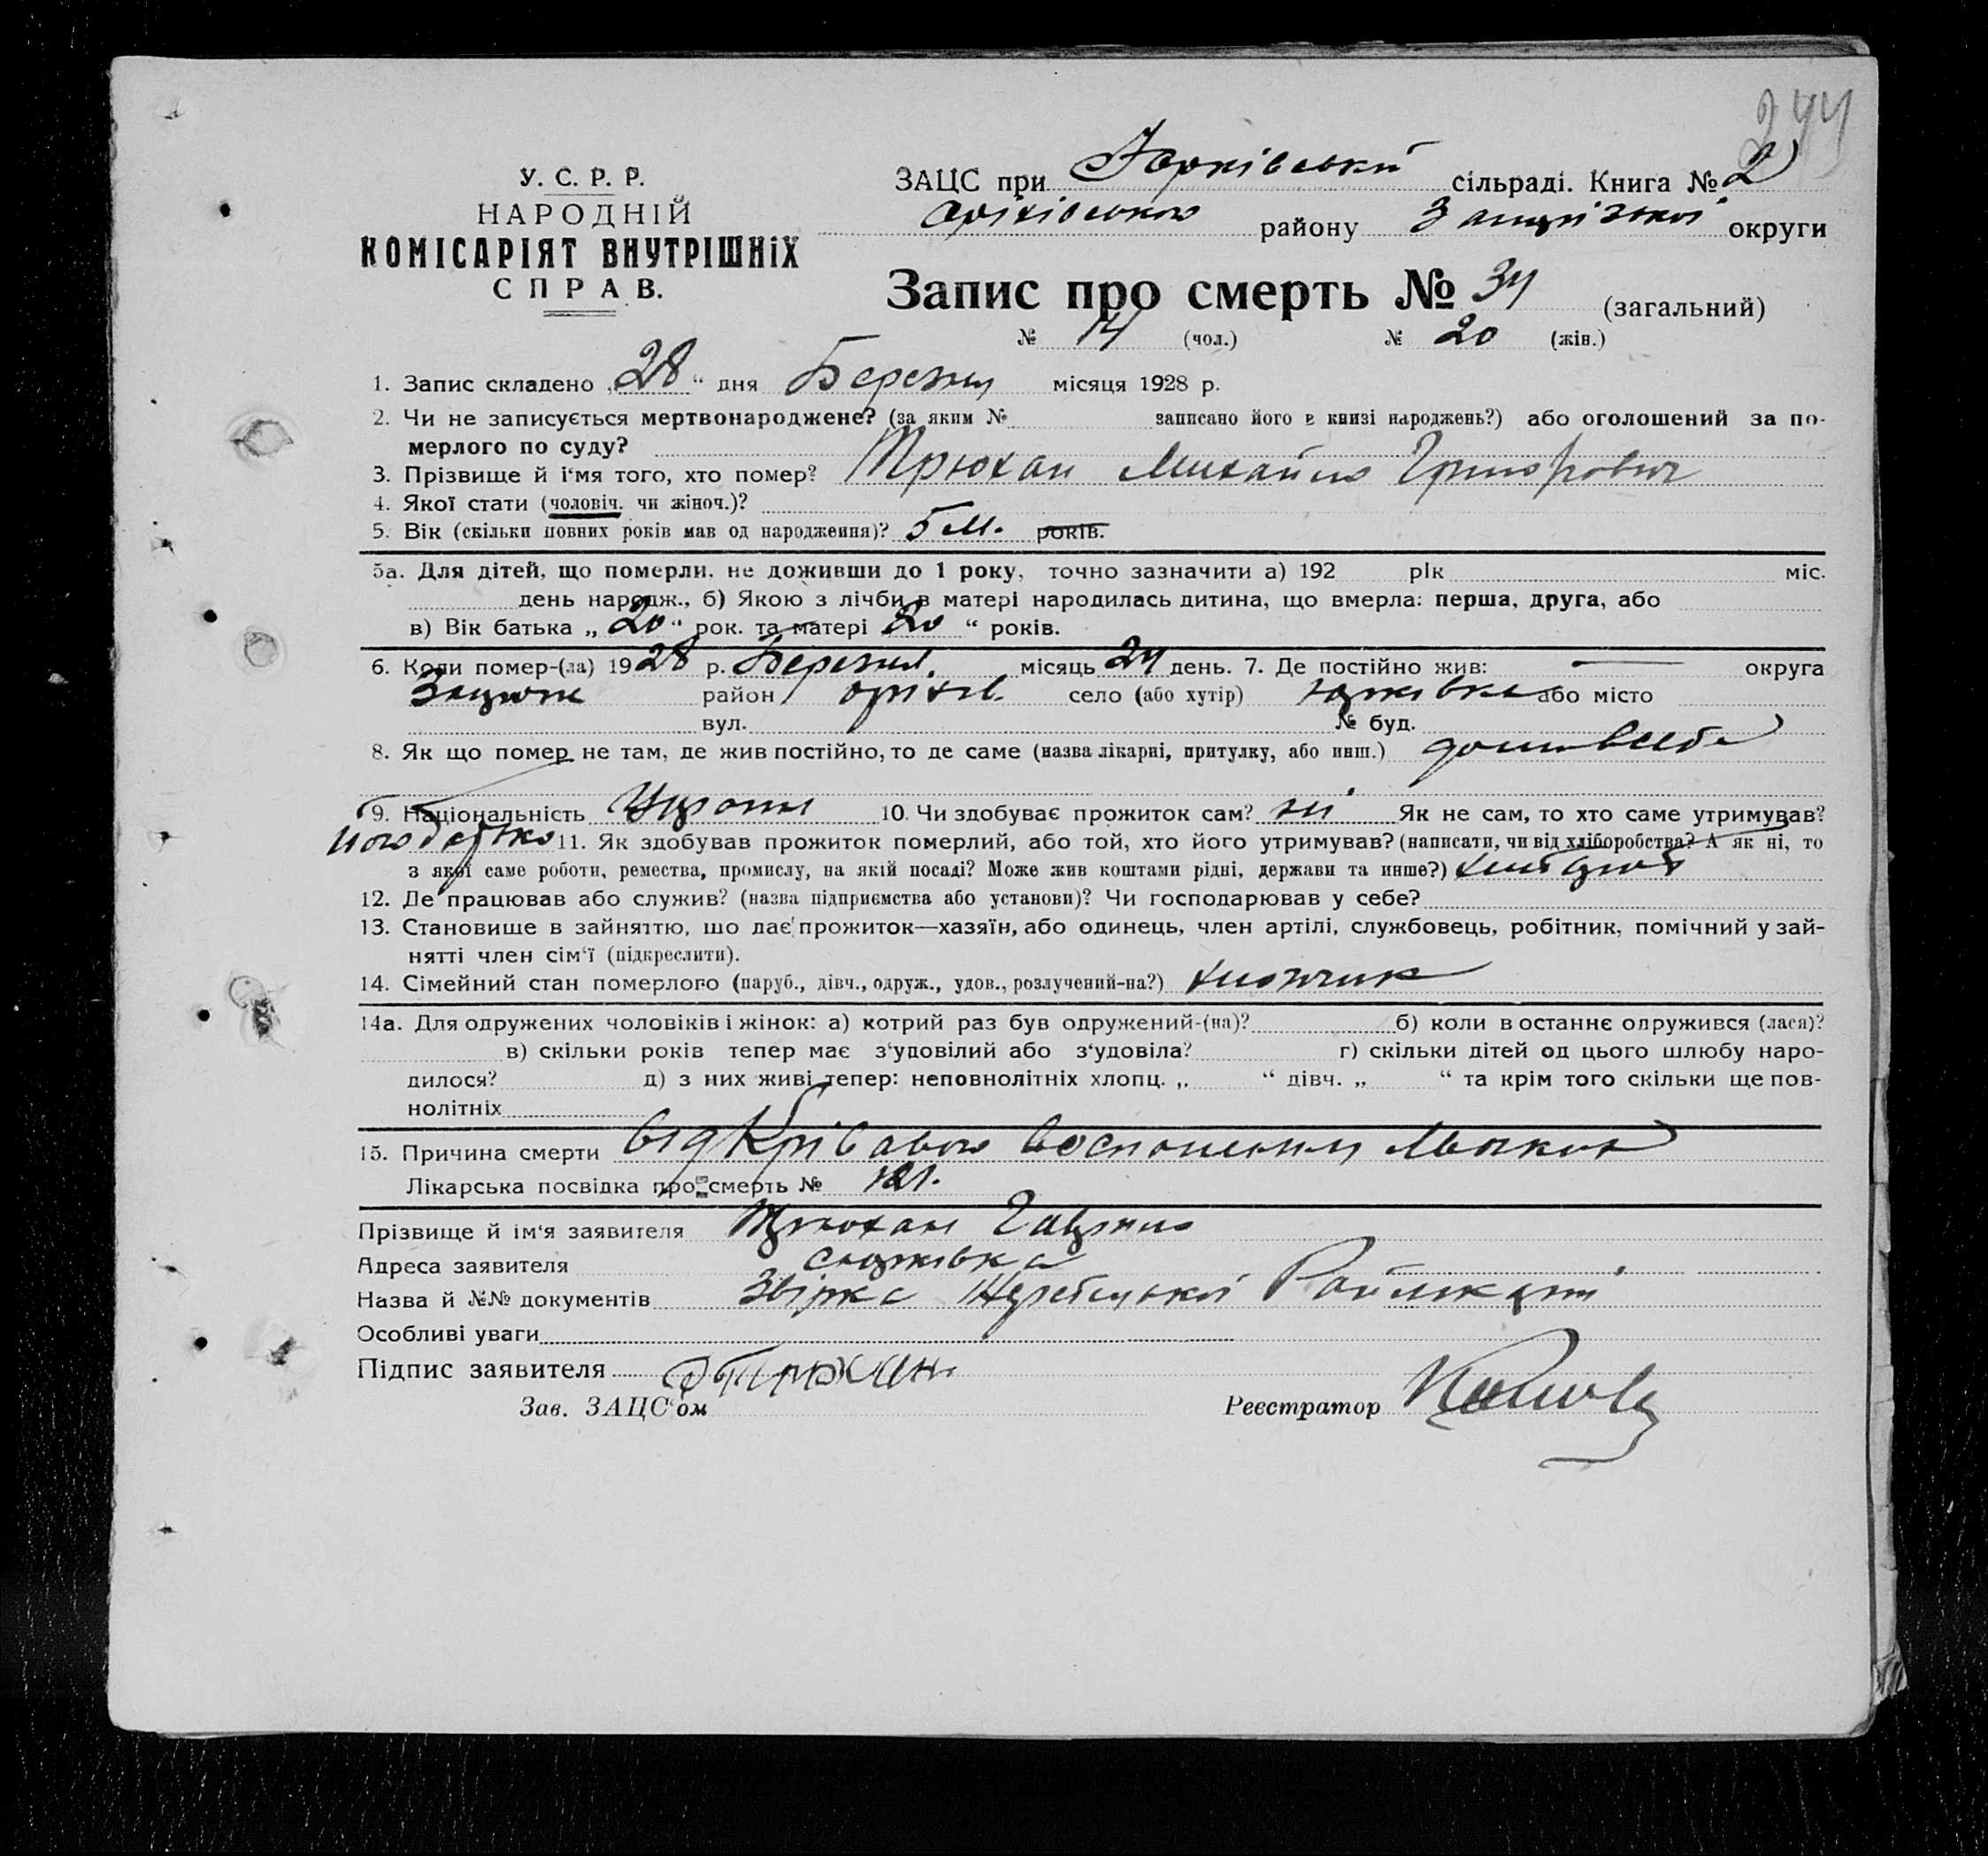 244
У. С. Р. Р.
НАРОДНІЙ
КОМІСАРІЯТ ВНУТРІШНІХ
СПРАВ.
ЗАЦС при Юрківській сільраді. Книга № 2
Оріхівського району Запорізької округи
Запис про смерть № 34 (загальний)
№ 14 (чол.) № 20 (жін.)
1. Запис складено „28“ дня Березня місяця 1928 р.
2. Чи не записується мертвонароджене? (за яким № записано його в книзі народжень?) або оголошений за по-
мерлого по суду?
3. Прізвище й і'мя того, хто помер? Трюхан Михайло Григорович
4. Якої стати (чоловіч. чи жіноч.)?
5. Вік (скільки повних років мав од народження)? 5 м. років.
5а. Для дітей, що померли, не доживши до 1 року, точно зазначити а) 192 рік міс.
день народж., б) Якою з лічби в матері народилась дитина, що вмерла: перша, друга, або
в) Вік батька „20“ рок. та матері 20 “ років.
6. Коли помер-(ла) 1928 р. Березня місяць 24 день. 7. Де постійно жив: округа
Запоріж район оріхів. село (або хутір) Юрківка або місто
вул. № буд.
8. Як що помер не там, де жив постійно, то де саме (назва лікарні, притулку, або инш.) дома в себе
9. Національність Україн 10. Чи здобуває прожиток сам? ні Як не сам, то хто саме утримував?
його батько 11. Як здобував прожиток померлий, або той, хто його утримував? (написати, чи від хліборобства? А як ні, то
з якої саме роботи, ремества, промислу, на якій посаді? Може жив коштами рідні, держави та инше?) хлібороб
12. Де працював або служив? (назва підприємства або установи)? Чи господарював у себе?
13. Становище в зайняттю, що дає прожиток—хазяїн, або одинець, член артілі, службовець, робітник, помічний у зай-
нятті член сім'ї (підкреслити).
14. Сімейний стан померлого (паруб., дівч., одруж., удов., розлучений-на?) хлопчик
14а. Для одружених чоловіків і жінок: а) котрий раз був одружений-(на)? б) коли в останнє одружився (лася)?
в) скільки років тепер має з'удовілий або з'удовіла? г) скільки дітей од цього шлюбу наро-
дилося? д) з них живі тепер: неповнолітніх хлопц. „ “ дівч. „ “ та крім того скільки ще пов-
нолітніх
15. Причина смерти від Крівавого Воспаления
Лікарська посвідка про смерть № 121.
Прізвище й ім'я заявителя Трюхан
Адреса заявителя с Юрківка
Назва й №№ документів
Особливі уваги
Підпис заявителя Трюхан
Зав. ЗАЦС'ом Реєстратор